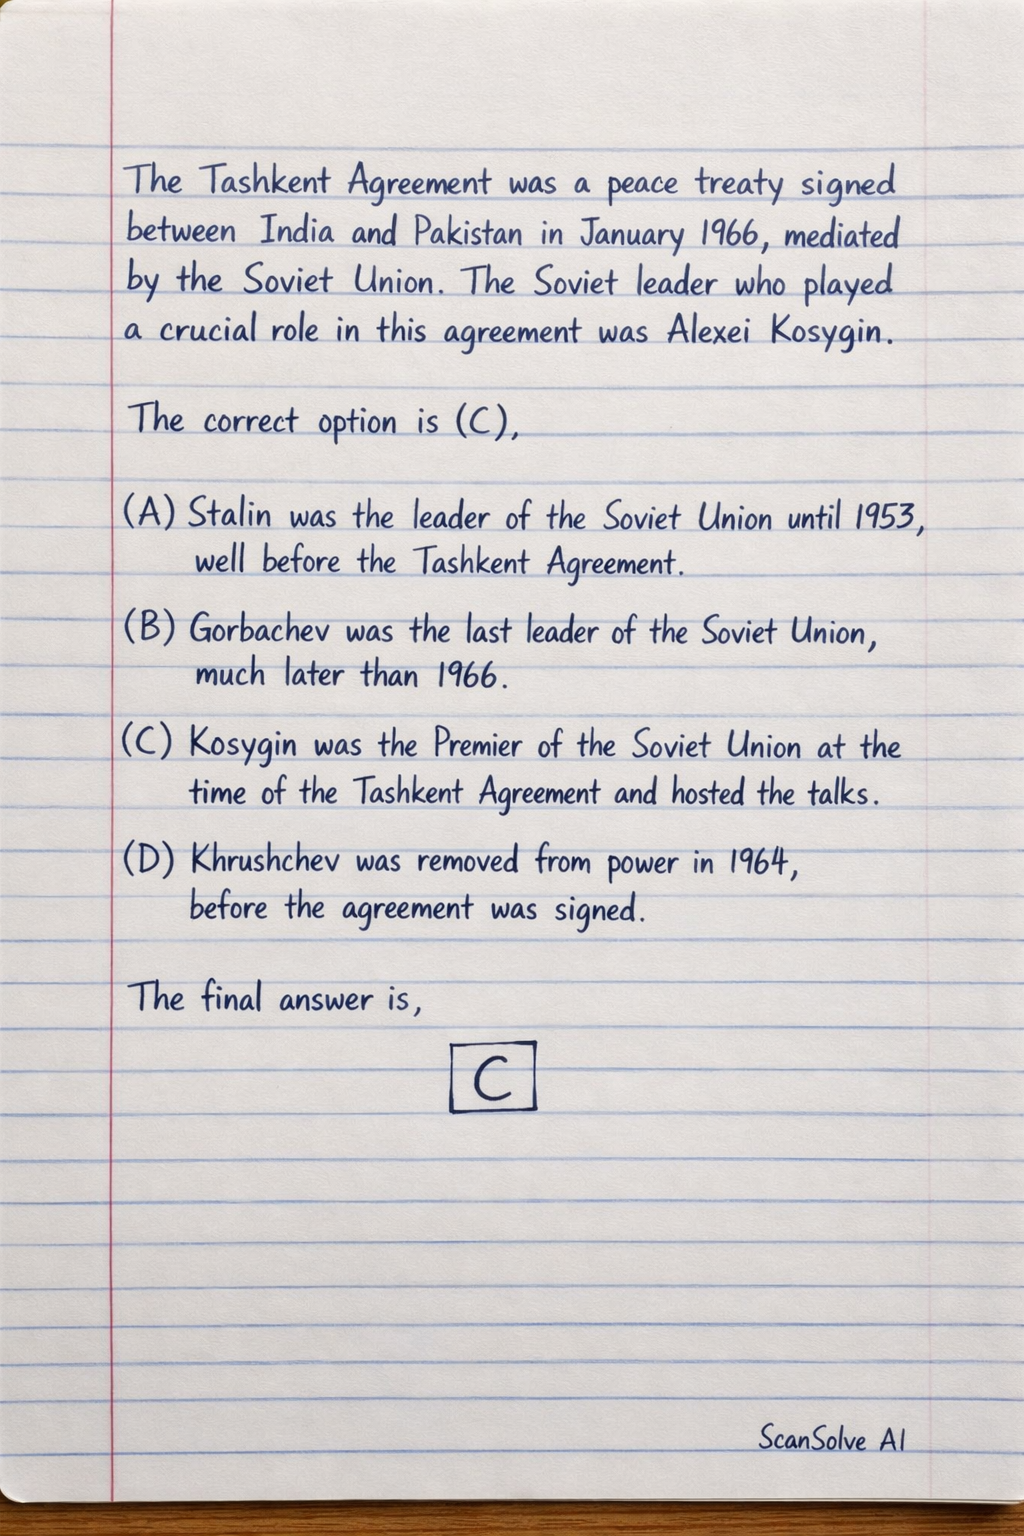 The Tashkent Agreement was a peace treaty signed
between India and Pakistan in January 1966, mediated
by the Soviet Union. The Soviet leader who played
a crucial role in this agreement was Alexei Kosygin.
The correct option is (C),
(A) Stalin was the leader of the Soviet Union until 1953,
well before the Tashkent Agreement.
(B) Gorbachev was the last leader of the Soviet Union,
much later than 1966.
(C) Kosygin was the Premier of the Soviet Union at the
time of the Tashkent Agreement and hosted the talks.
(D) Khrushchev was removed from power in 1964,
before the agreement was signed.
The final answer is,
C
ScanSolve AI